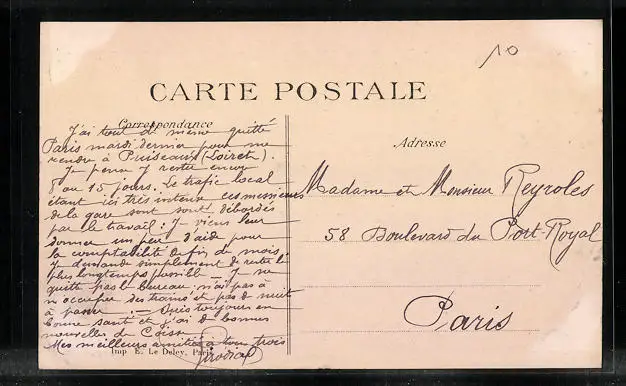 10
CARTE POSTALE
Correspondance
Adresse
J'ai tout de même quitté
Paris mardi dernier pour me
rendre à Puiseaux (Loiret).
Je pense y rester environ
8 ou 15 jours. Le trafic local
étant ici très intense ces messieurs
de la gare sont débordés
par le travail ; je viens leur
donner un peu d'aide pour
la comptabilité de fin de mois.
Je demande simplement de rester le
plus longtemps possible — Je ne
quitte pas le bureau ; n'ait pas à
m'occuper des trains et pas de nuit
à passer. — Suis toujours en
bonne santé et j'ai de bonnes
nouvelles du
Mes meilleurs amitiés à tous trois
Imp. E. Le Deley, Paris
Madame et Monsieur Reyroles
58 Boulevard du Port-Royal
Paris